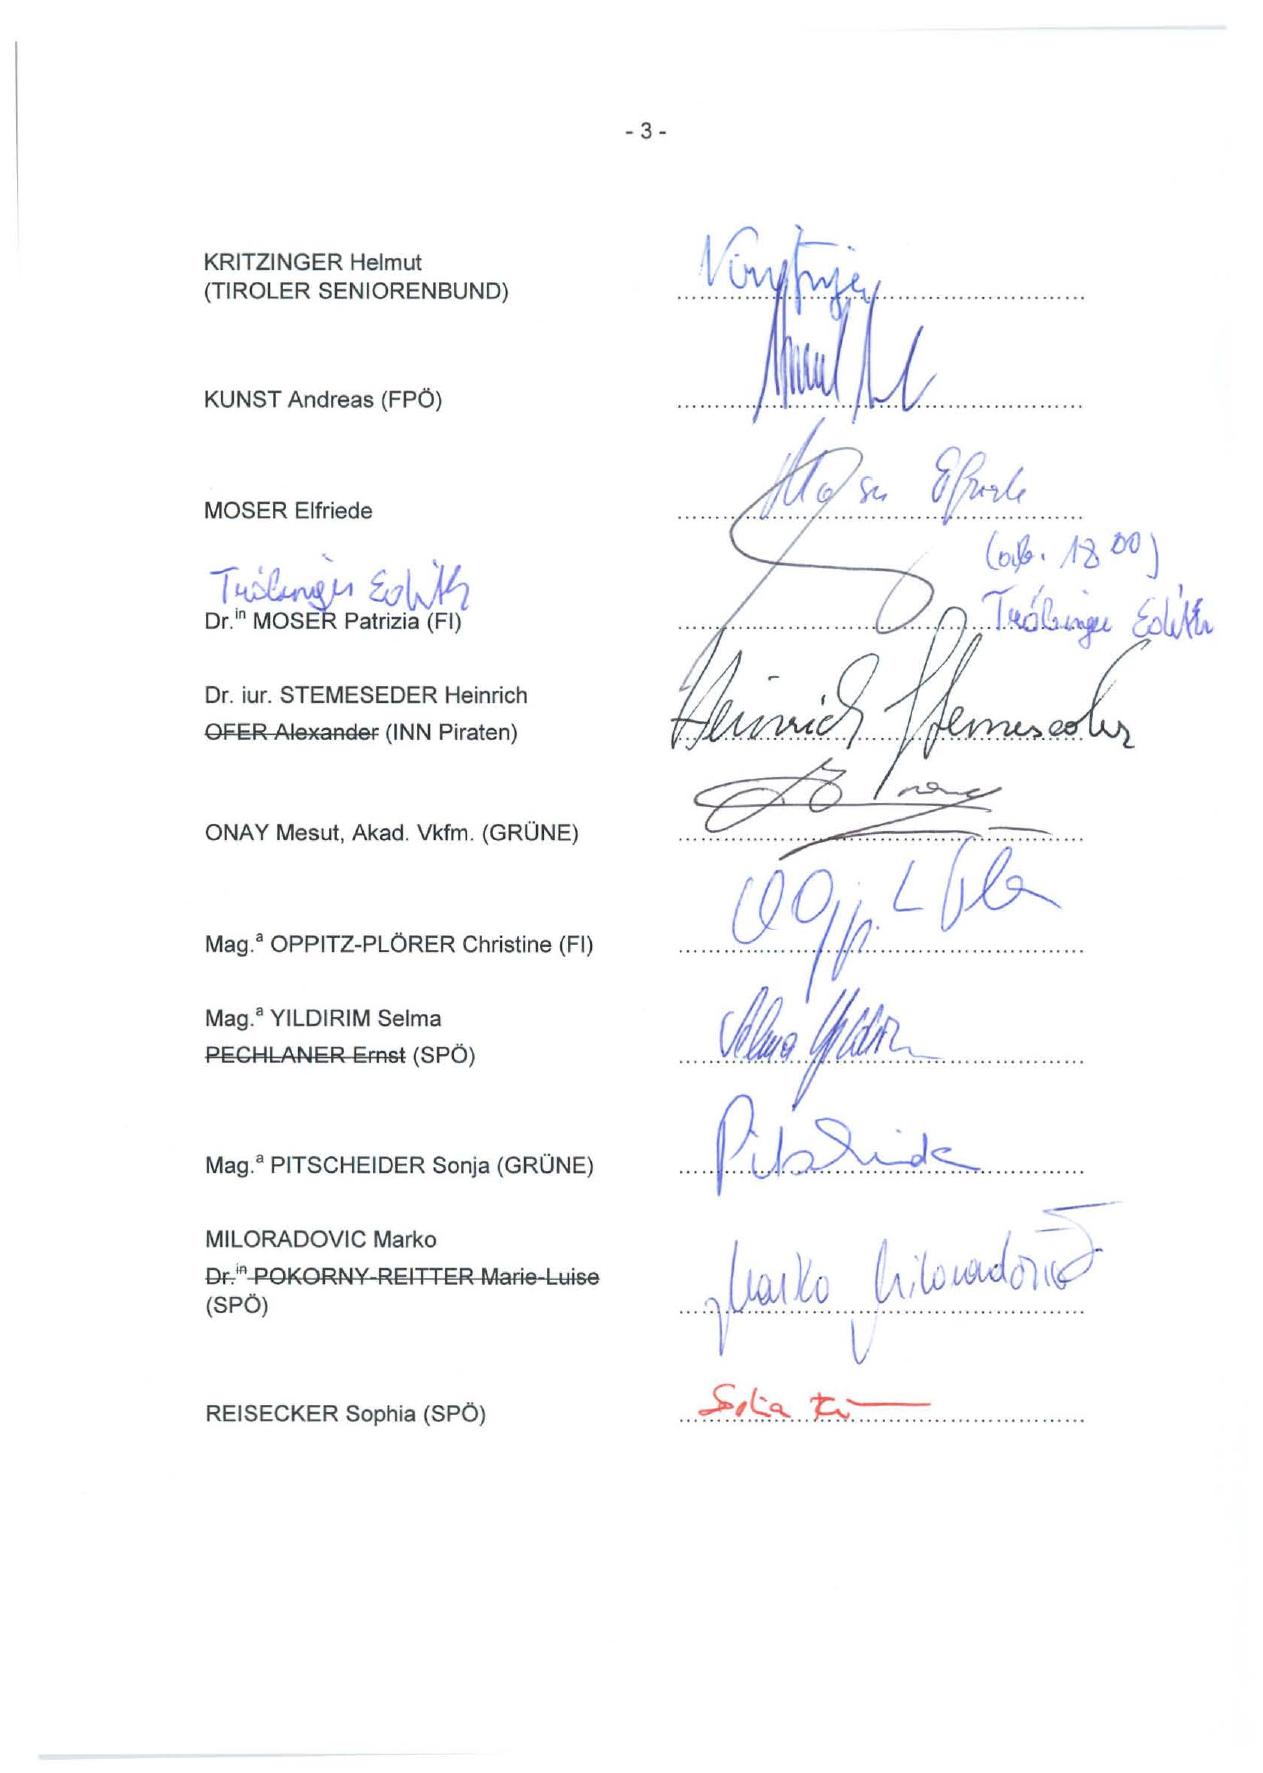 - 3 -
KRITZINGER Helmut
(TIROLER SENIORENBUND)
KUNST Andreas (FPÖ)
MOSER Elfriede
Moser Elfriede
(ab. 18 00)
Trölinger Edith
Dr.in MOSER Patrizia (FI)
Trölinger Edith
Dr. iur. STEMESEDER Heinrich
OFER Alexander (INN Piraten)
Heinrich Stemeseder
ONAY Mesut, Akad. Vkfm. (GRÜNE)
Mag.a OPPITZ-PLÖRER Christine (FI)
Mag.a YILDIRIM Selma
PECHLANER Ernst (SPÖ)
Selma Yildirim
Mag.a PITSCHEIDER Sonja (GRÜNE)
Pitscheider
MILORADOVIC Marko
Dr.in POKORNY-REITTER Marie-Luise
(SPÖ)
Marko Miloradovic
REISECKER Sophia (SPÖ)